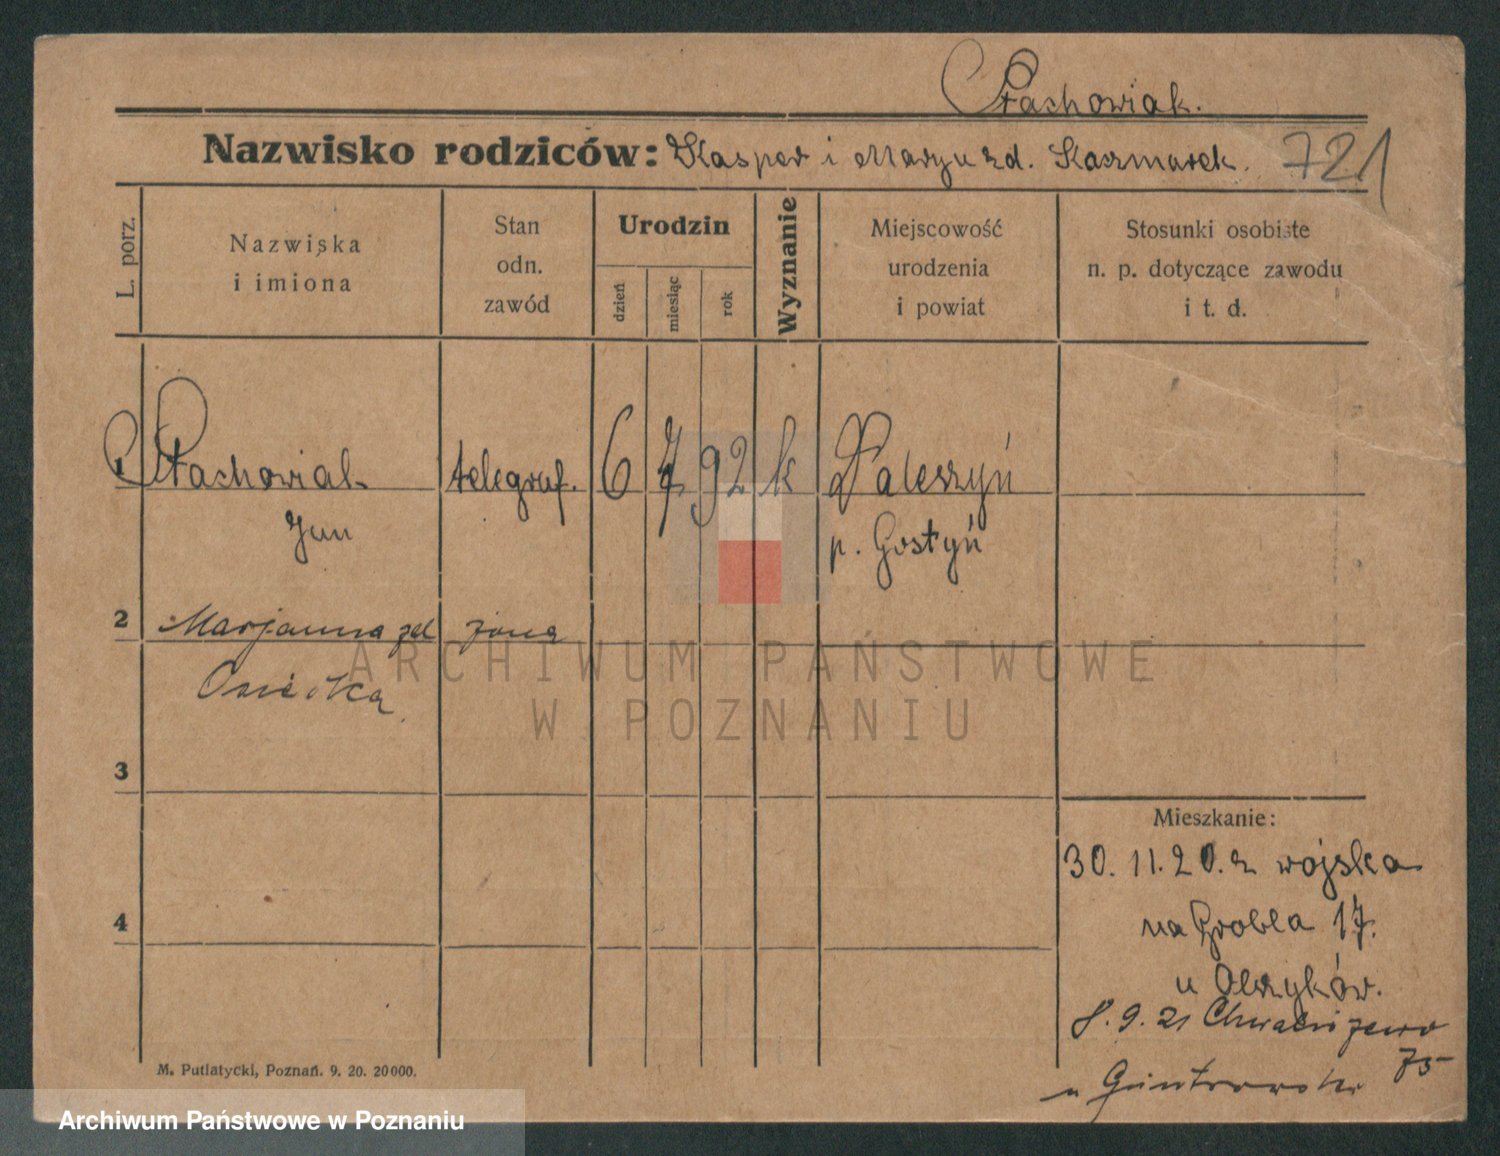 Stachowiak.
Nazwisko rodziców: Kasper i Maryn zd. Kaczmarek. 721
L. porz.
Nazwiska
i imiona
Stan
odn.
zawód
Urodzin
dzień
miesiąc
rok
Wyznanie
Miejscowość
urodzenia
i powiat
Stosunki osobiste
n. p. dotyczące zawodu
i t. d.
1 Stachowiak telegraf. 6 7 92 k Daleszyń
Jan p. Gostyń
2 Marjanna zd żona
Osiecka
3
4
Mieszkanie:
30. 11. 20. z wojska
na Grobla 17.
u Olszyków.
8. 9. 21 Chwaliszewo
75
u
M. Putiatycki, Poznań. 9. 20. 20000.
ARCHIWUM PAŃSTWOWE
W POZNANIU
Archiwum Państwowe w Poznaniu